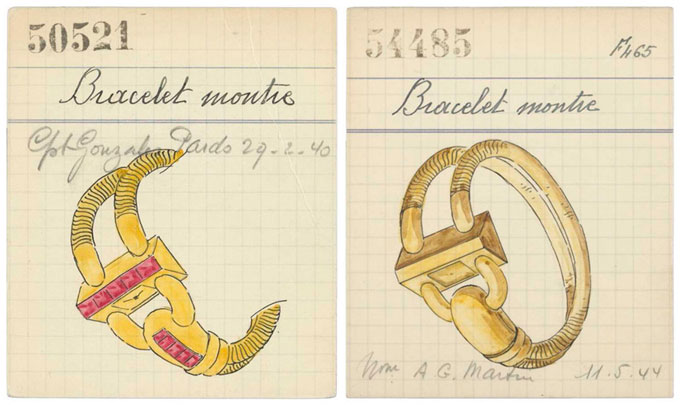 50521
Bracelet montre
Cpt Gonzales Pardo 29-2-40
54485
F465
Bracelet montre
A G. Martin 11.5.44